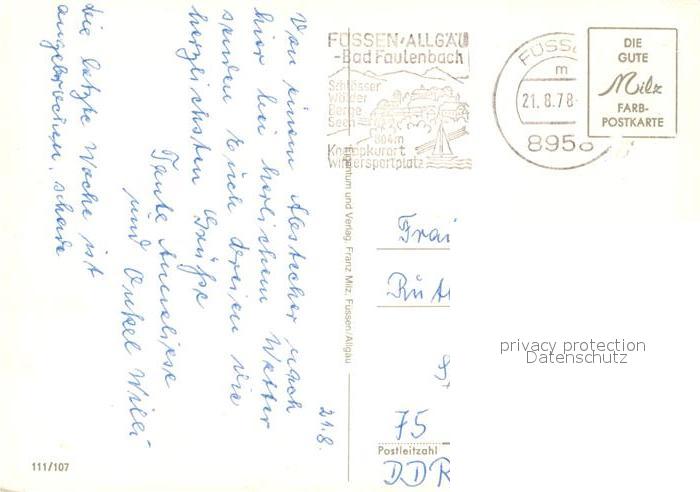 21.8.
Von einem Abstecher nach
hier bei herrlichem Wetter
senden Euch dreien die
herzlichsten Grüße
Tante Anneliese
und Onkel Willi
Die letzte Woche ist
angebrochen, schade
FÜSSEN-ALLGÄU
-Bad Faulenbach
Schlösser
Wälder
Berge
Seen
804m
Kneippkurort
Wintersportplatz
FÜSS
m
21.8.78-
8958
DIE
GUTE
Milz
FARB-
POSTKARTE
Eigentum und Verlag: Franz Milz, Füssen/Allgäu
75
Postleitzahl
DDR
privacy protection
Datenschutz
111/107